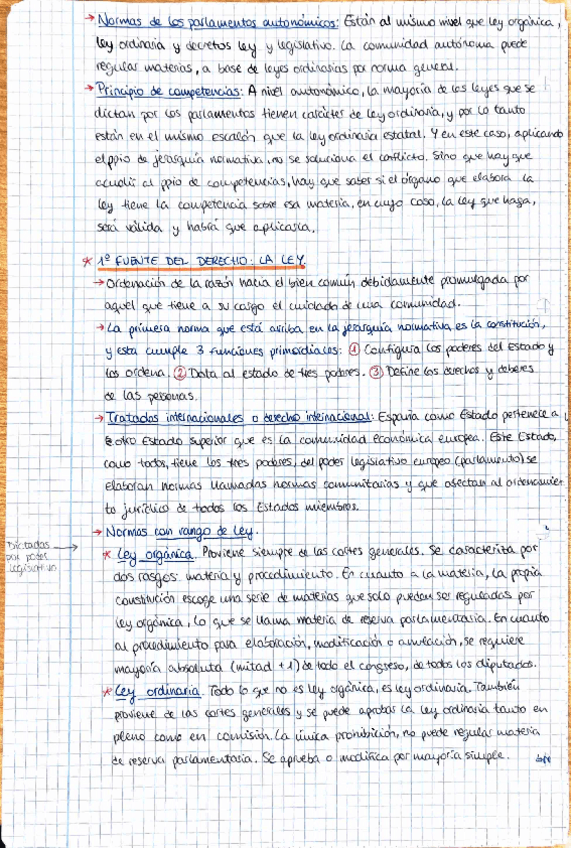 → Normas de los parlamentos autonómicos: Están al mismo nivel que ley orgánica,
ley ordinaria y decretos ley y legislativo. La comunidad autónoma puede
regular materias, a base de leyes ordinarias por norma general.
→ Principio de competencias: A nivel autonómico, la mayoría de las leyes que se
dictan por los parlamentos tienen carácter de ley ordinaria, y por lo tanto
están en el mismo escalón que la ley ordinaria estatal. Y en este caso, aplicando
el ppio de jerarquía normativa, no se soluciona el conflicto. Sino que hay que
acudir al ppio de competencias, hay que saber si el órgano que elabora la
ley tiene la competencia sobre esa materia, en cuyo caso, la ley que haga,
será válida y habrá que aplicarla.
* 1º FUENTE DEL DERECHO: LA LEY.
→ Ordenación de la razón hacia el bien común debidamente promulgada por
aquel que tiene a su cargo el cuidado de una comunidad.
→ La primera norma que está arriba en la jerarquía normativa es la constitución,
y esta cumple 3 funciones primordiales: ① Configura los poderes del Estado y
los ordena. ② Dota al estado de tres poderes. ③ Define los derechos y deberes
de las personas.
→ Tratados internacionales o derecho internacional: España como Estado pertenece a
otro Estado superior que es la comunidad económica europea. Este Estado,
como todos, tiene los tres poderes, del poder legislativo europeo (parlamento) se
elaboran normas llamadas normas comunitarias y que afectan al ordenamien
to jurídico de todos los Estados miembros.
→ Normas con rango de ley.
Dictadas
por poder
legislativo →
* Ley orgánica. Proviene siempre de las cortes generales. Se caracteriza por
dos rasgos: materia y procedimiento. En cuanto a la materia, la propia
constitución escoge una serie de materias que solo puedan ser reguladas por
ley orgánica, lo que se llama materia de reserva parlamentaria. En cuanto
al procedimiento para elaboración, modificación o anulación, se requiere
mayoría absoluta (mitad + 1) de todo el congreso, de todos los diputados.
* Ley ordinaria. Todo lo que no es ley orgánica, es ley ordinaria. También
proviene de las cortes generales y se puede aprobar la ley ordinaria tanto en
pleno como en comisión. La única prohibición, no puede regular materia
de reserva parlamentaria. Se aprueba o modifica por mayoría simple.